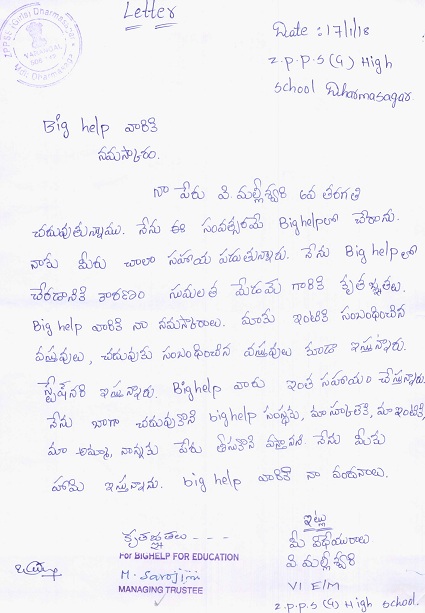 Letter
Date : 17/1/18
Z.P.P.S (G) High
School Dharmasagar.
Big help వారికి
నమస్కారం.
నా పేరు వి. మల్లీశ్వరి 6వ తరగతి
చదువుతున్నాము. నేను ఈ సంవత్సరమే Big helpలో చేరాను.
నాకు మీరు చాలా సహాయ పడుతున్నారు. నేను Big help లో
చేరడానికి కారణం సుమలత మేడమ్ గారికి కృతజ్ఞతలు.
Big help వారికి నా నమస్కారాలు. మాకు ఇంటికి సంబంధించిన
వస్తువులు, చదువుకు సంబంధించిన వస్తువులు కూడా ఇస్తున్నారు.
స్టేషనరి ఇస్తున్నారు. Big help వారు ఇంత సహాయం చేస్తున్నారు.
నేను బాగా చదువుకొని big help సంస్థకు, మా స్కూలుకి, మా ఇంటికి,
మా అమ్మా, నాన్నకు పేరు తీసుకొని వస్తానని. నేను మీకు
హామి ఇస్తున్నాను. big help వారికి నా వందనాలు.
ఇట్లు
కృతజ్ఞతలు - - -
మీ విధేయురాలు
For BIGHELP FOR EDUCATION
వి మల్లీశ్వరి
M. Sarojini
VI E/M
MANAGING TRUSTEE
Z.P.P.S (G) High School.